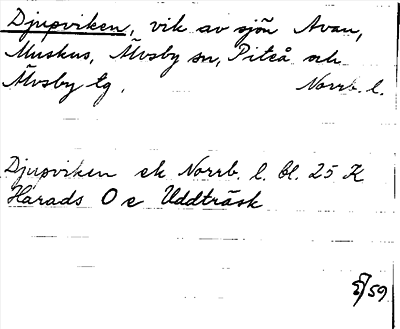 Djupviken, vik av sjön Avan,
Muskus, Älvsby sn, Piteå och
Älvsby tg. Norrb. l.
Djupviken ek Norrb. l. bl. 25 K
Harads O e Uddträsk
59